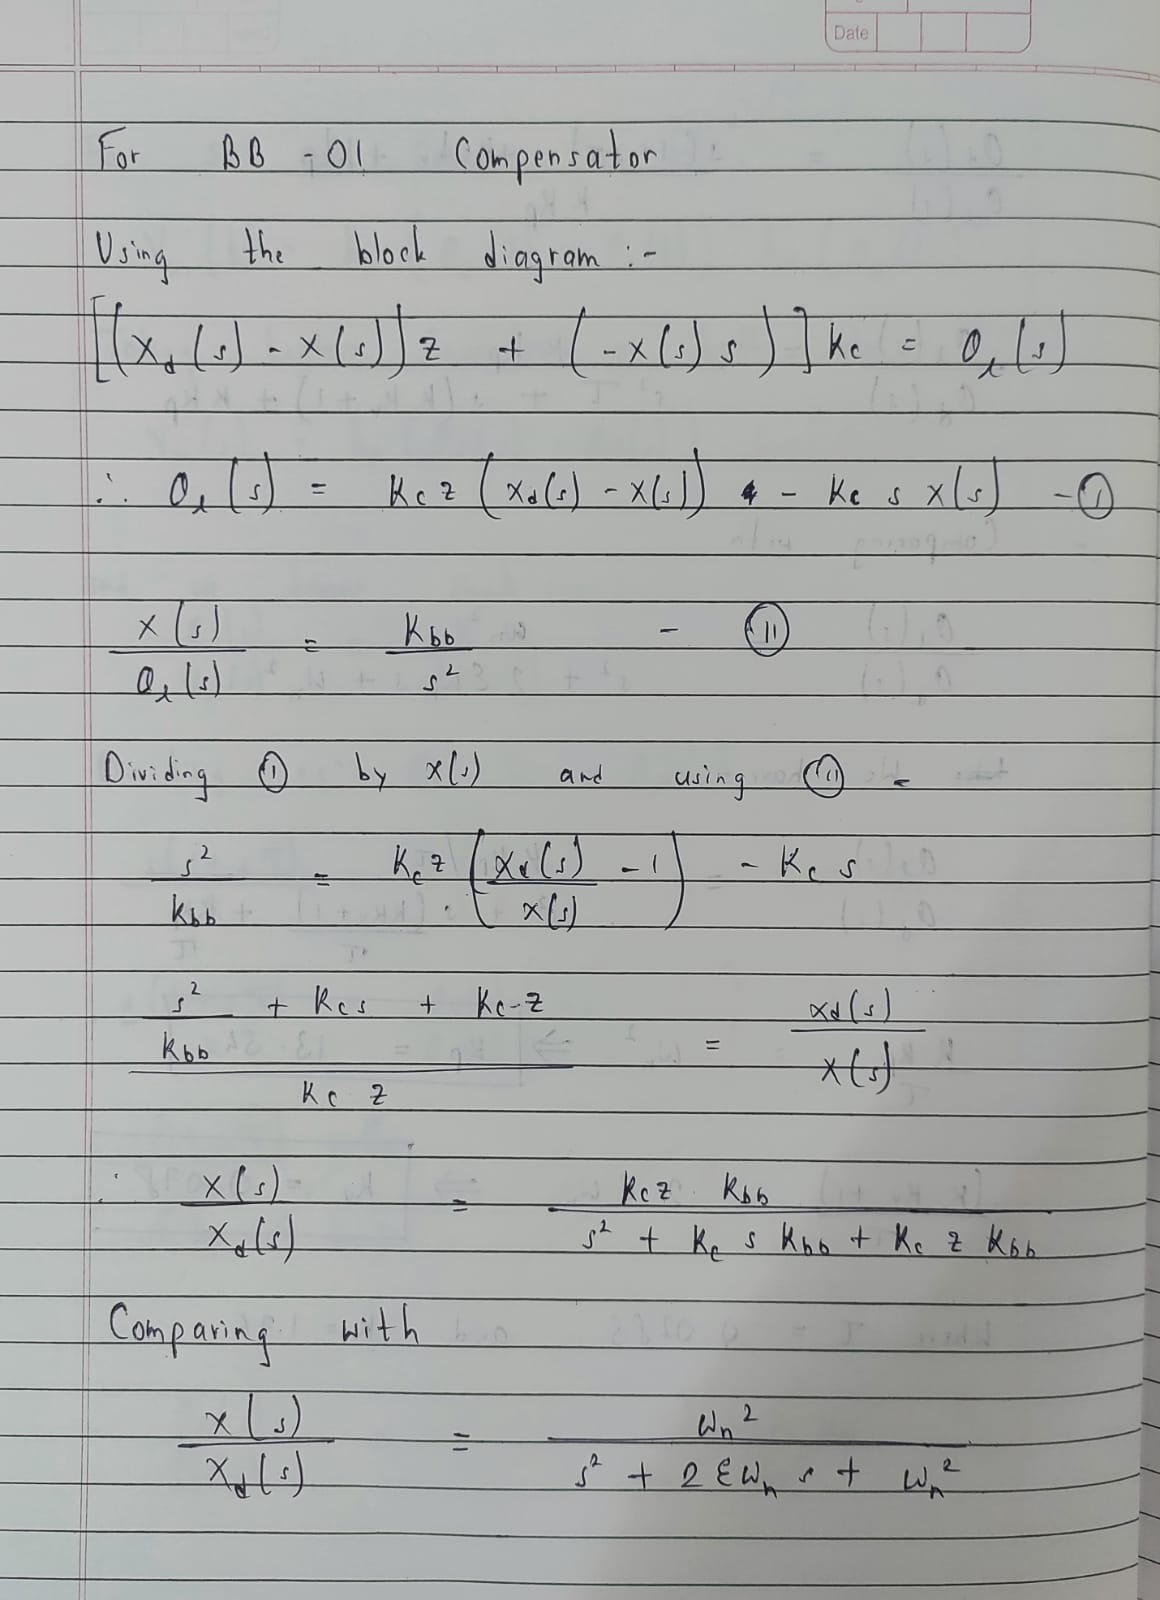 Date
For BB-01 Compensator
Using the block diagram :-
[(X_d(s) - X(s)) z + (-X(s) s)] Kc = θ_l(s)
∴ θ_l(s) = Kc z (X_d(s) - X(s)) - Kc s X(s) - (I)
X(s) / θ_l(s) = Kbb / s² - (II)
Dividing (I) by X(s) and using (II) -
s² / Kbb = Kc z (X_d(s) / X(s) - 1) - Kc s
(s² / Kbb + Kc s + Kc-z) / (Kc z) = X_d(s) / X(s)
∴ X(s) / X_d(s) = Kc z Kbb / (s² + Kc s Kbb + Kc z Kbb)
Comparing with
X(s) / X_d(s) = ωn² / (s² + 2 ξ ωn s + ωn²)